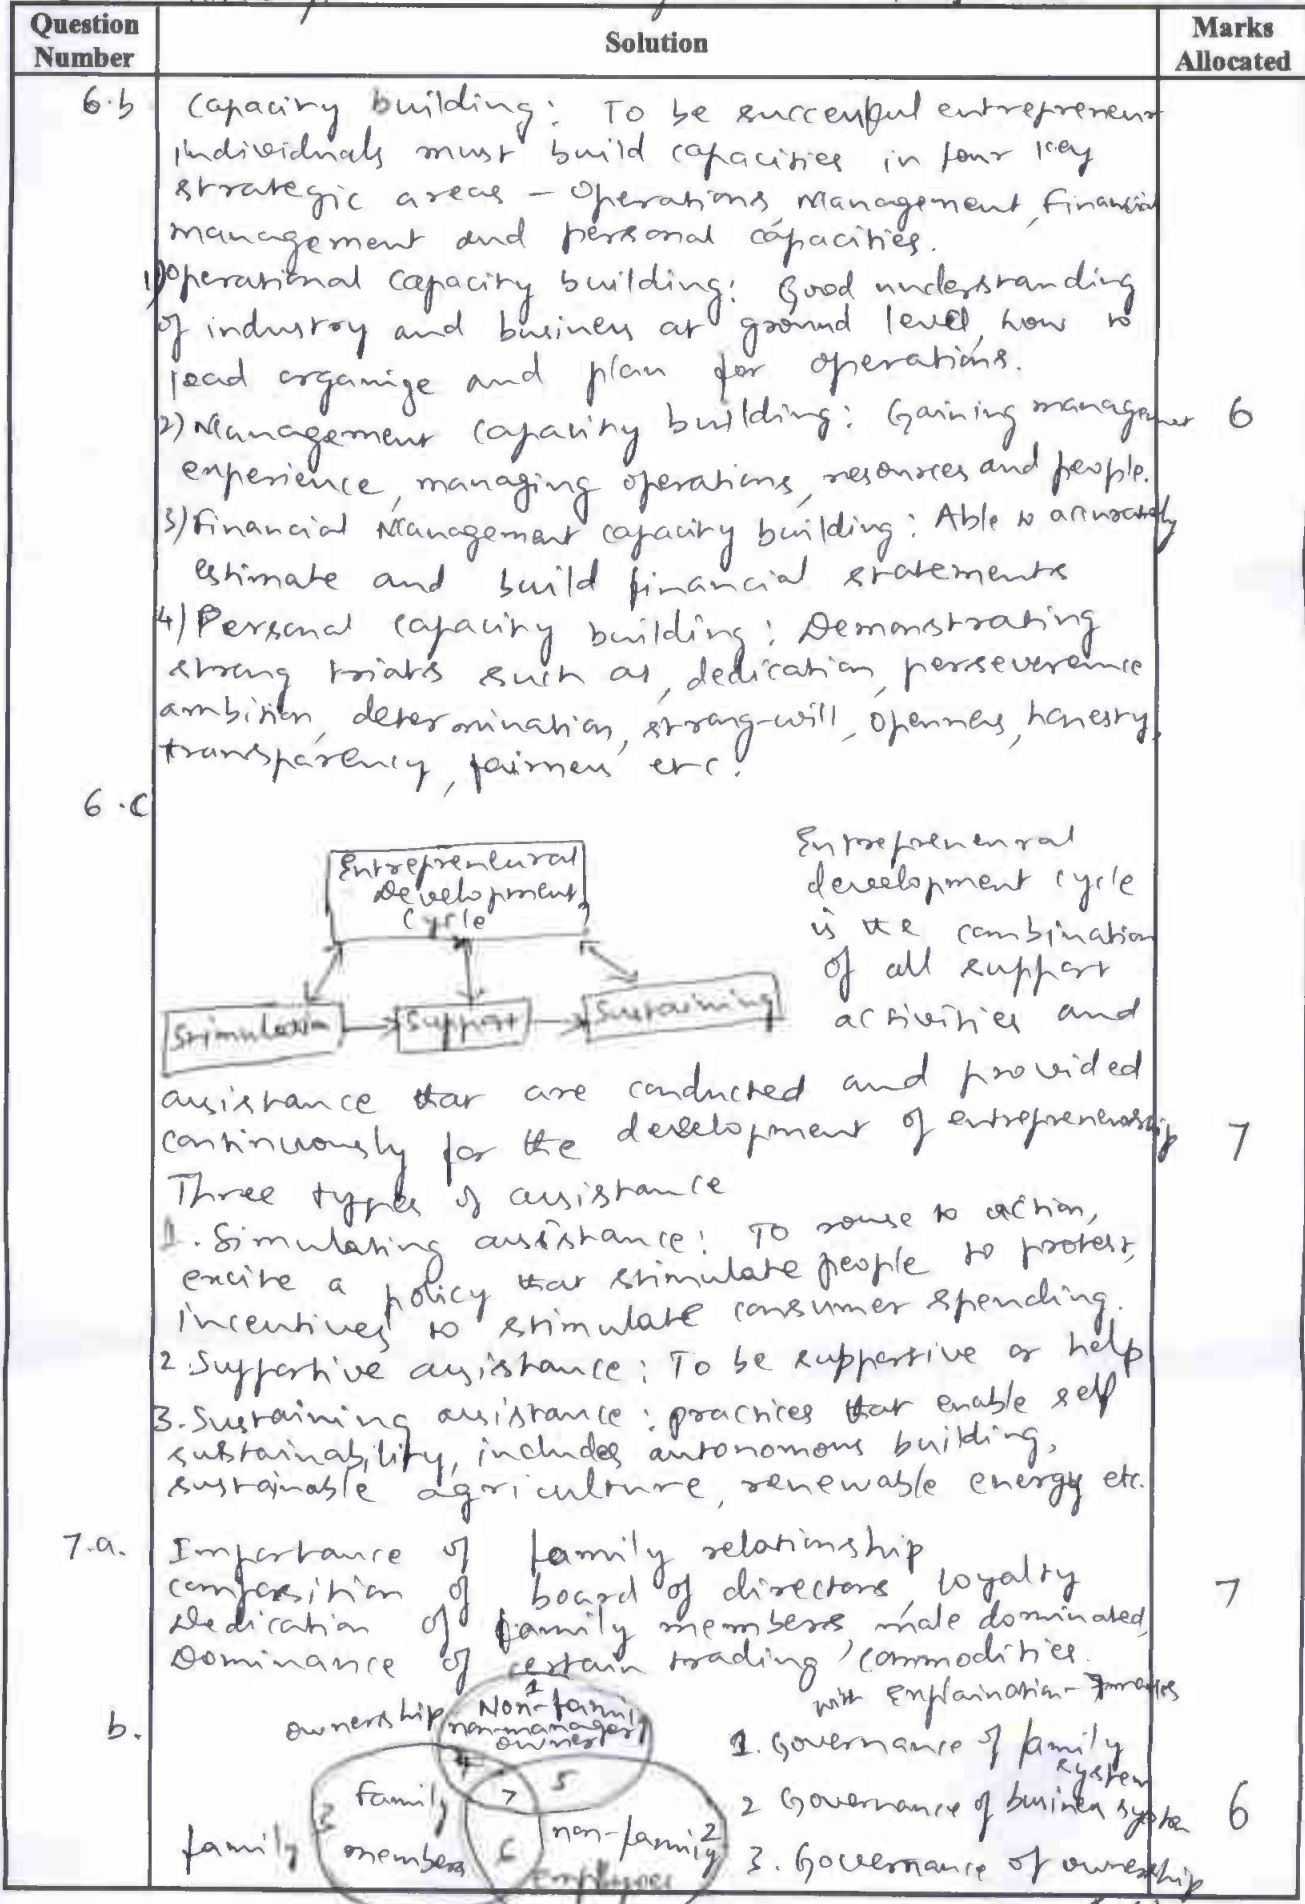 Question Number
Solution
Marks Allocated
6.b
Capacity building: To be successful entrepreneur
individuals must build capacities in four key
strategic areas - Operations, Management, Financial
management and personal capacities.
1) Operational capacity building: Good understanding
of industry and business at ground level, how to
lead organize and plan for operations.
2) Management capacity building: Gaining management
6
experience, managing operations, resources and people.
3) Financial Management capacity building: Able to accurately
estimate and build financial statements
4) Personal capacity building: Demonstrating
strong triats such as, dedication, perseverence
ambition, determination, strong-will, openness, honesty,
transparency, fairness etc.
6.c
Entrepreneural
Development
Cycle
Stimulation
Support
Sustaining
Entrepreneural
development cycle
is the combination
of all support
activities and
assistance that are conducted and provided
continuously for the development of entrepreneurship
7
Three types of assistance
1. Simulating assistance: To rouse to action,
excite a policy that stimulate people to protest,
incentives to stimulate consumer spending.
2. Supportive assistance: To be supportive or help
3. Sustaining assistance: practices that enable self
sustainability, includes autonomous building,
sustainable agriculture, renewable energy etc.
7.a.
Importance of family relationship
composition of board of directors, loyalty
7
Dedication of family members, male dominated,
Dominance of certain trading commodities.
with Explaination -
b.
ownership
1
Non-family
non-manager
owner
4
5
7
3
family
members
family
6
non-family
2
Employees
1. Governance of family
system
2 Governance of business system
6
3. Governance of ownership